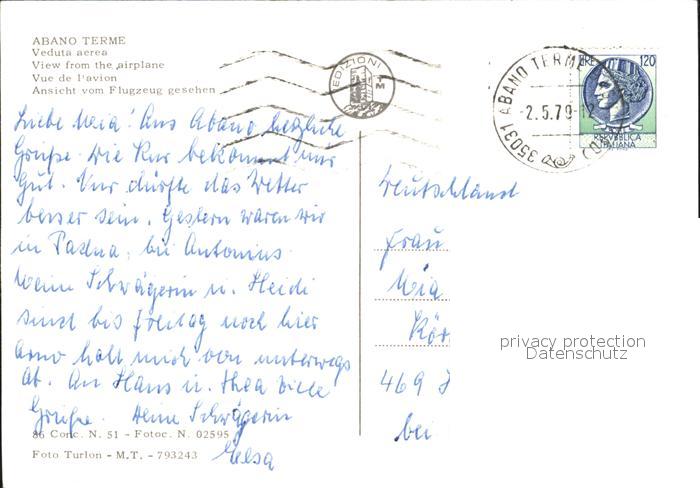 ABANO TERME
Veduta aerea
View from the airplane
Vue de l'avion
Ansicht vom Flugzeug gesehen
EDIZIONI
M
35031 ABANO TERME
-2.5.79-12
LIRE 120
REPVBBLICA
ITALIANA
Liebe Mia! Aus Abano herzliche
Grüße. Die Kur bekommt mir
gut. Nur dürfte das Wetter
besser sein. Gestern waren wir
in Padua, bei Antonius.
Meine Schwägerin u. Heidi
sind bis Freitag noch hier
Arno holt mich von unterwegs
ab. An Hans u. Thea viele
Grüße. Deine Schwägerin
Elsa
Deutschland
Frau
Mia
Kör
469
bei
privacy protection
Datenschutz
86 Conc. N. 51 - Fotoc. N. 02595
Foto Turlon - M.T. - 793243